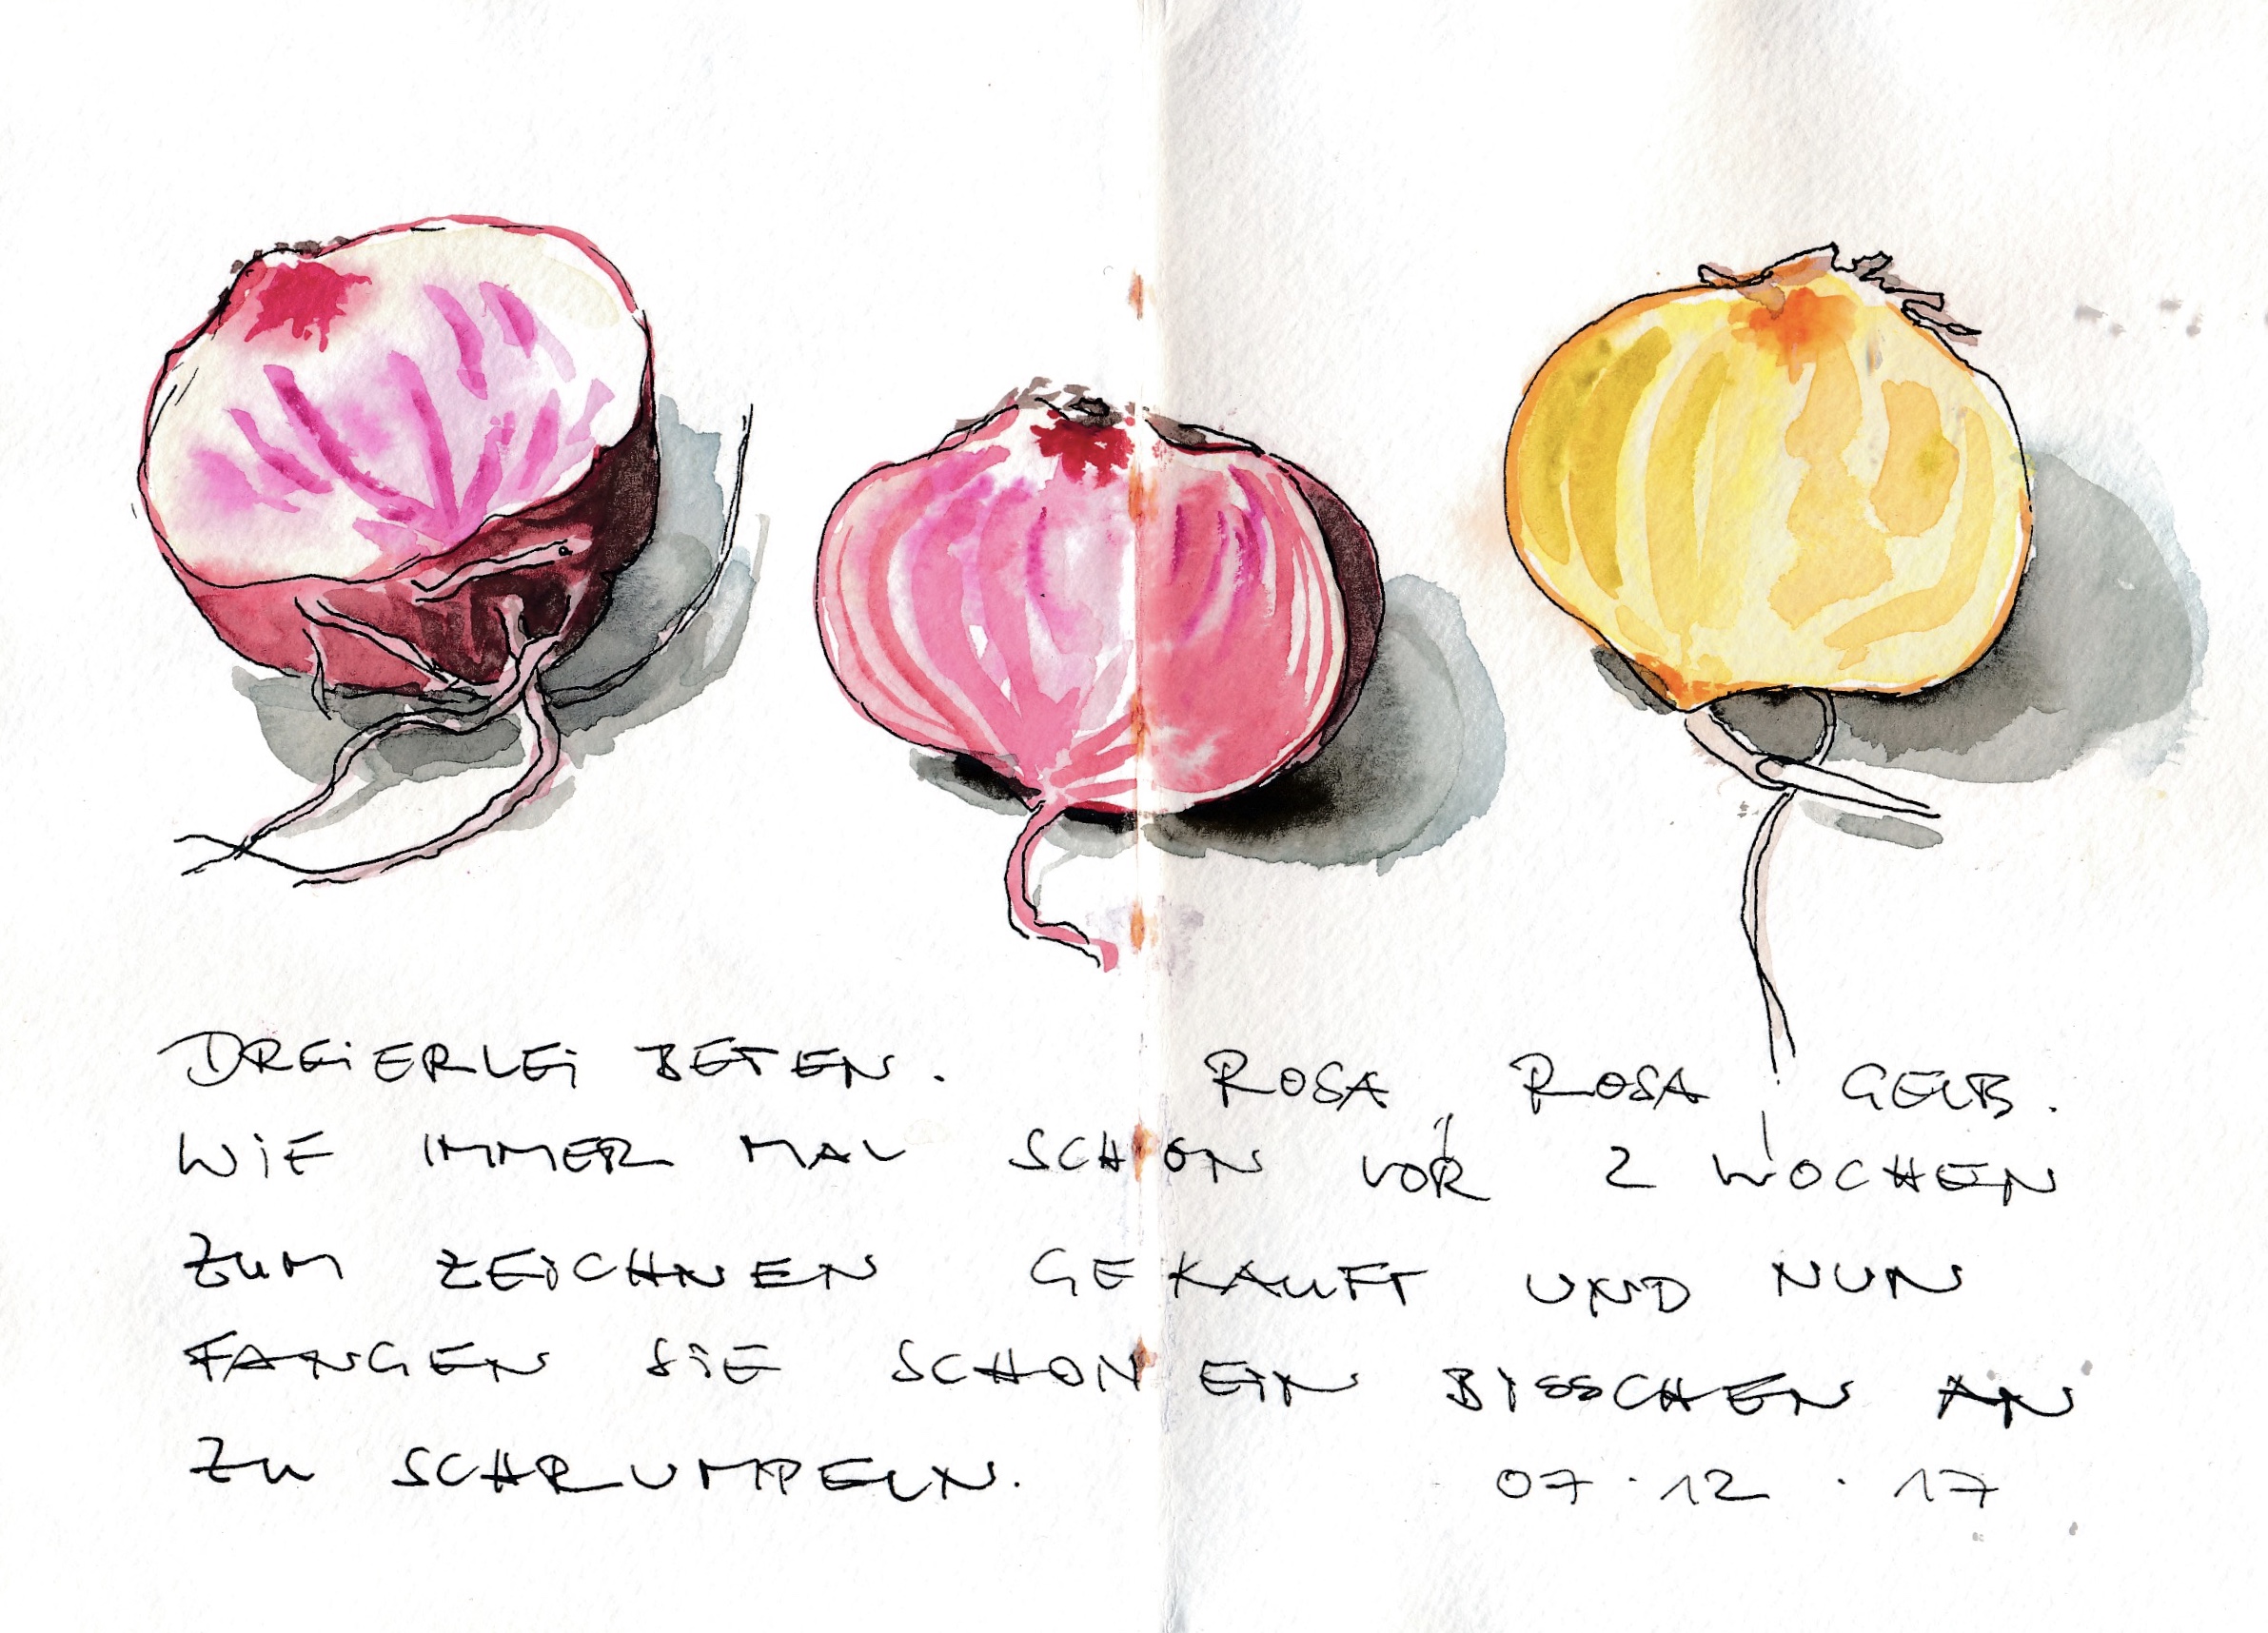 DREIERLEI BETEN. ROSA, ROSA, GELB.
WIE IMMER MAL SCHON VOR 2 WOCHEN
ZUM ZEICHNEN GEKAUFT UND NUN
FANGEN SIE SCHON EIN BISSCHEN AN
ZU SCHRUMPELN. 07.12.17